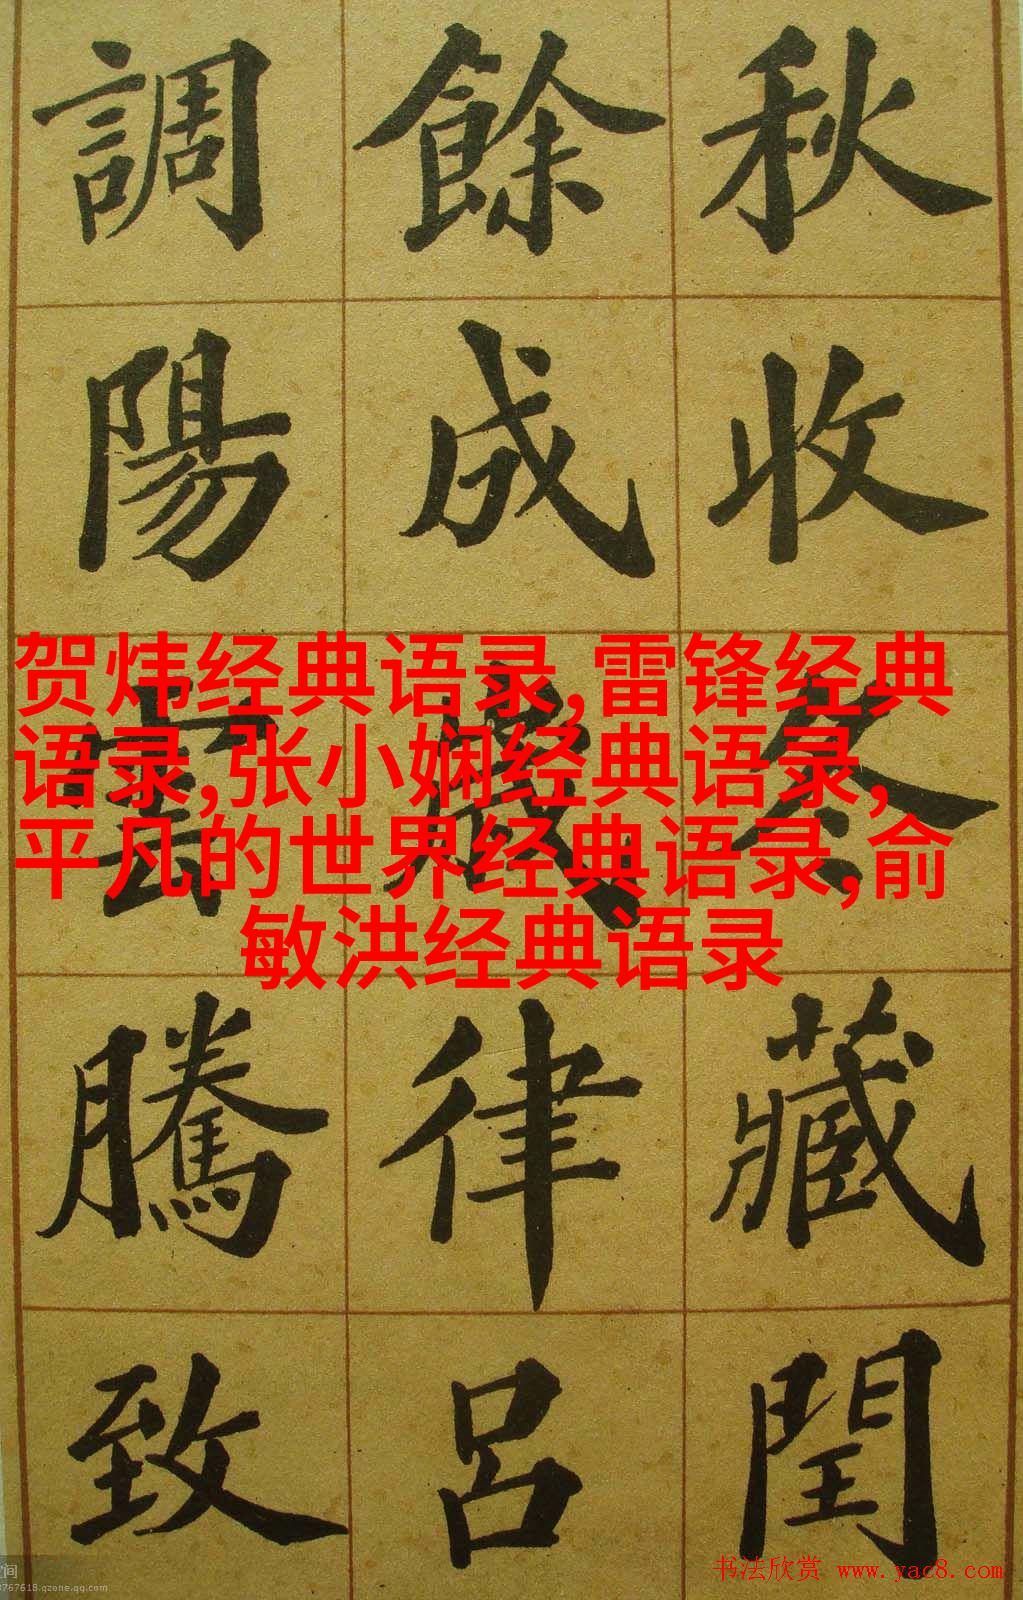 秋收冬藏閏
餘成歲律呂
調陽雲騰致
贺炜经典语录,雷锋经典
语录,张小娴经典语录,
平凡的世界经典语录,俞
敏洪经典语录
书法欣赏 www.yac8.com
空间
3767618.qzone.qq.com